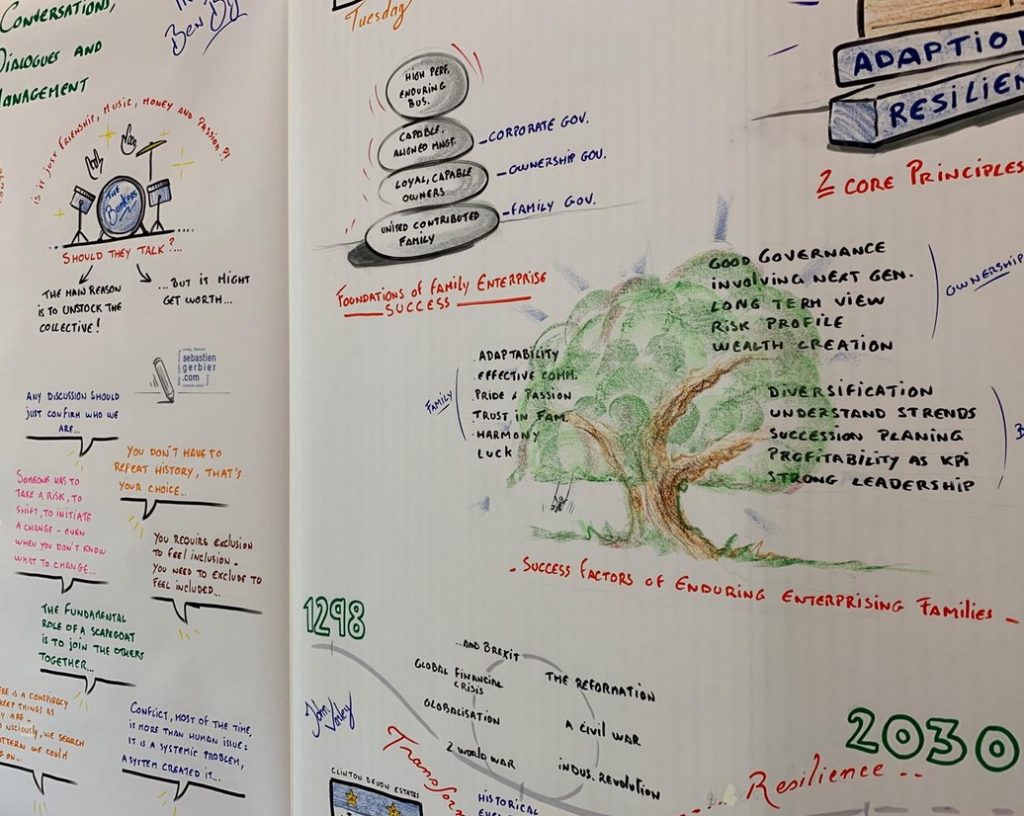 CONVERSATIONS,
DIALOGUES AND
MANAGEMENT
BEN
IS IT JUST FRIENDSHIP, MUSIC, MONEY AND PASSION ?!
THE
SHOULD THEY TALK ?...
THE MAIN REASON
IS TO UNSTOCK THE
COLLECTIVE !
...BUT IT MIGHT
GET WORTH...
sebastien
gerbier
.com
ANY DISCUSSION SHOULD
JUST CONFIRM WHO WE
ARE...
YOU DON'T HAVE TO
REPEAT HISTORY, THAT'S
YOUR CHOICE...
SOMEONE HAS TO
TAKE A RISK, TO
SHIFT, TO INITIATE
A CHANGE - EVEN
WHEN YOU DON'T KNOW
WHAT TO CHANGE...
YOU REQUIRE EXCLUSION
TO FEEL INCLUSION -
YOU NEED TO EXCLUDE TO
FEEL INCLUDED...
THE FUNDAMENTAL
ROLE OF A SCAPEGOAT
IS TO JOIN THE OTHERS
TOGETHER...
IS A CONSPIRACY
KEEP THINGS AS
ARE -
WE SEARCH
WE COULD
ON...
CONFLICT, MOST OF THE TIME,
IS MORE THAN HUMAN ISSUE:
IT IS A SYSTEMIC PROBLEM,
A SYSTEM CREATED IT...
TUESDAY
HIGH PERF.
ENDURING
BUS.
CAPABLE,
ALIGNED MNGT.
- CORPORATE GOV.
LOYAL, CAPABLE
OWNERS
- OWNERSHIP GOV.
UNITED CONTRIBUTED
FAMILY
- FAMILY GOV.
FOUNDATIONS OF FAMILY ENTERPRISE
SUCCESS
ADAPTIO
RESILIEN
2 CORE PRINCIPLES
GOOD GOVERNANCE
INVOLVING NEXT GEN.
LONG TERM VIEW
RISK PROFILE
WEALTH CREATION
OWNERSHIP
FAMILY
. ADAPTABILITY
. EFFECTIVE COMM.
. PRIDE & PASSION
. TRUST IN FAM.
. HARMONY
LUCK
DIVERSIFICATION
UNDERSTAND STRENDS
SUCCESSION PLANING
PROFITABILITY AS KPI
STRONG LEADERSHIP
- SUCCESS FACTORS OF ENDURING ENTERPRISING FAMILIES -
1298
...AND BREXIT
GLOBAL FINANCIAL
CRISIS
GLOBALISATION
2 WORLD WAR
THE REFORMATION
A CIVIL WAR
INDUS. REVOLUTION
JOHN VARLEY
TRANSFORM
CLINTON DEVON ESTATES
HISTORICAL
... RESILIENCE ...
2030